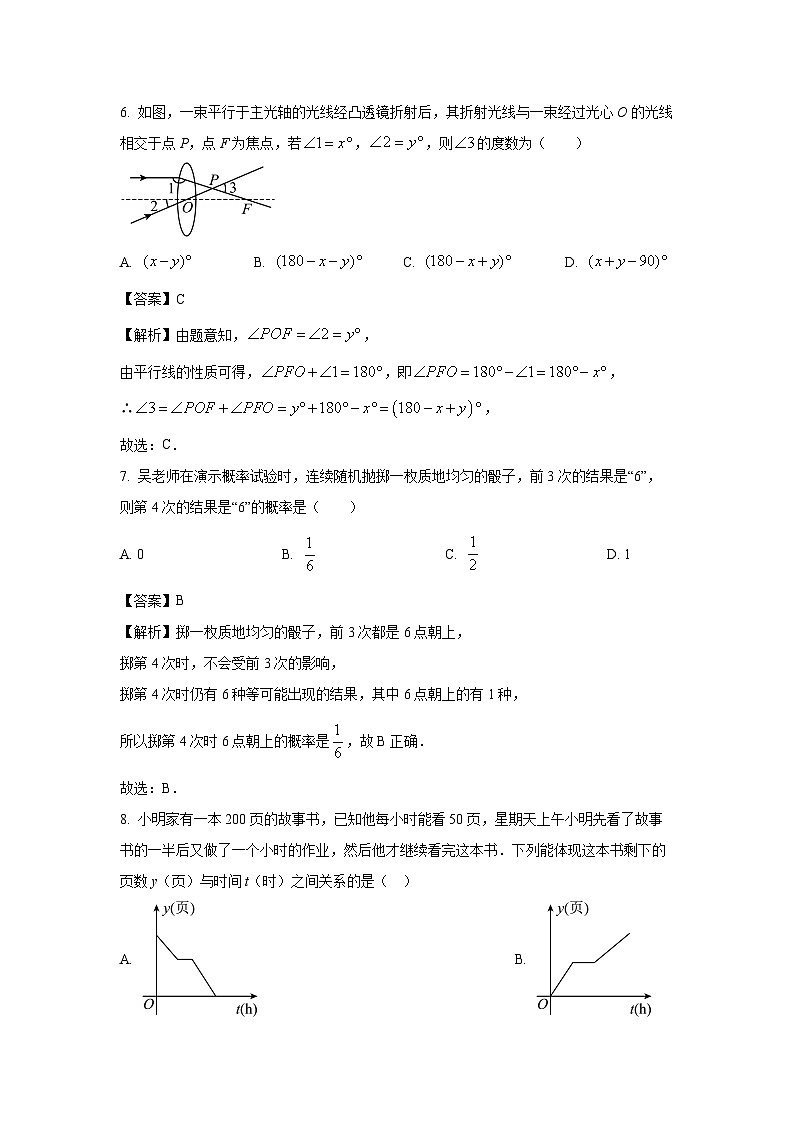 6. 如图，一束平行于主光轴的光线经凸透镜折射后，其折射光线与一束经过光心 O 的光线
相交于点 P，点 F 为焦点，若∠1＝x°，∠2＝y°，则∠3的度数为（　　）
P
1
3
2
O
F
A. (x−y)° B. (180−x−y)° C. (180−x+y)° D. (x+y−90)°
【答案】C
【解析】由题意知，∠POF＝∠2＝y°，
由平行线的性质可得，∠PFO+∠1＝180°，即∠PFO＝180°−∠1＝180°−x°，
∴∠3＝∠POF+∠PFO＝y°+180°−x°＝(180−x+y)°，
故选：C．
7. 吴老师在演示概率试验时，连续随机抛掷一枚质地均匀的骰子，前 3 次的结果是“6”，
则第 4 次的结果是“6”的概率是（　　）
A. 0 B. 1/6 C. 1/2 D. 1
【答案】B
【解析】掷一枚质地均匀的骰子，前 3 次都是 6 点朝上，
掷第 4 次时，不会受前 3 次的影响，
掷第 4 次时仍有 6 种等可能出现的结果，其中 6 点朝上的有 1 种，
所以掷第 4 次时 6 点朝上的概率是1/6，故 B 正确．
故选：B．
8. 小明家有一本 200 页的故事书，已知他每小时能看 50 页，星期天上午小明先看了故事
书的一半后又做了一个小时的作业，然后他才继续看完这本书．下列能体现这本书剩下的
页数 y（页）与时间 t（时）之间关系的是（　）
A.
y(页)
O
t(h)
B.
y(页)
O
t(h)